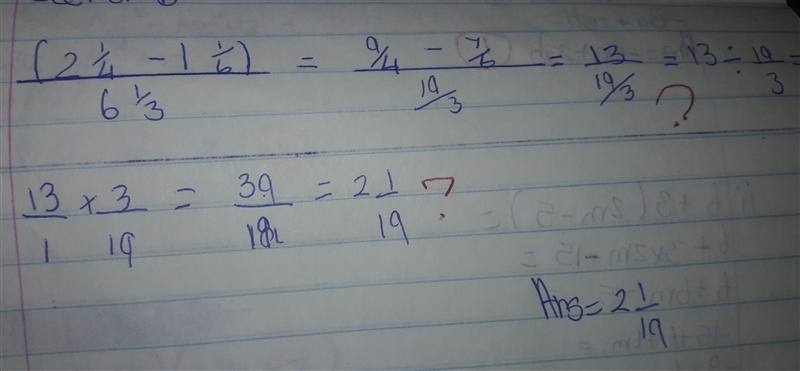 (2 1/4 - 1 1/6) / 6 1/3 = 9/4 - 7/6 / 19/3 = 13 / 19/3 = 13 ÷ 19/3 =
?
13/1 × 3/19 = 39/19 = 2 1/19 ?
Ans = 2 1/19